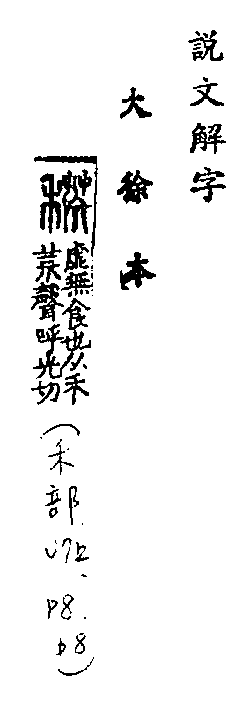 説文解字
大徐本
䅣 虛無食也从禾
荒聲呼光切
(禾部 七上、P8.P8)